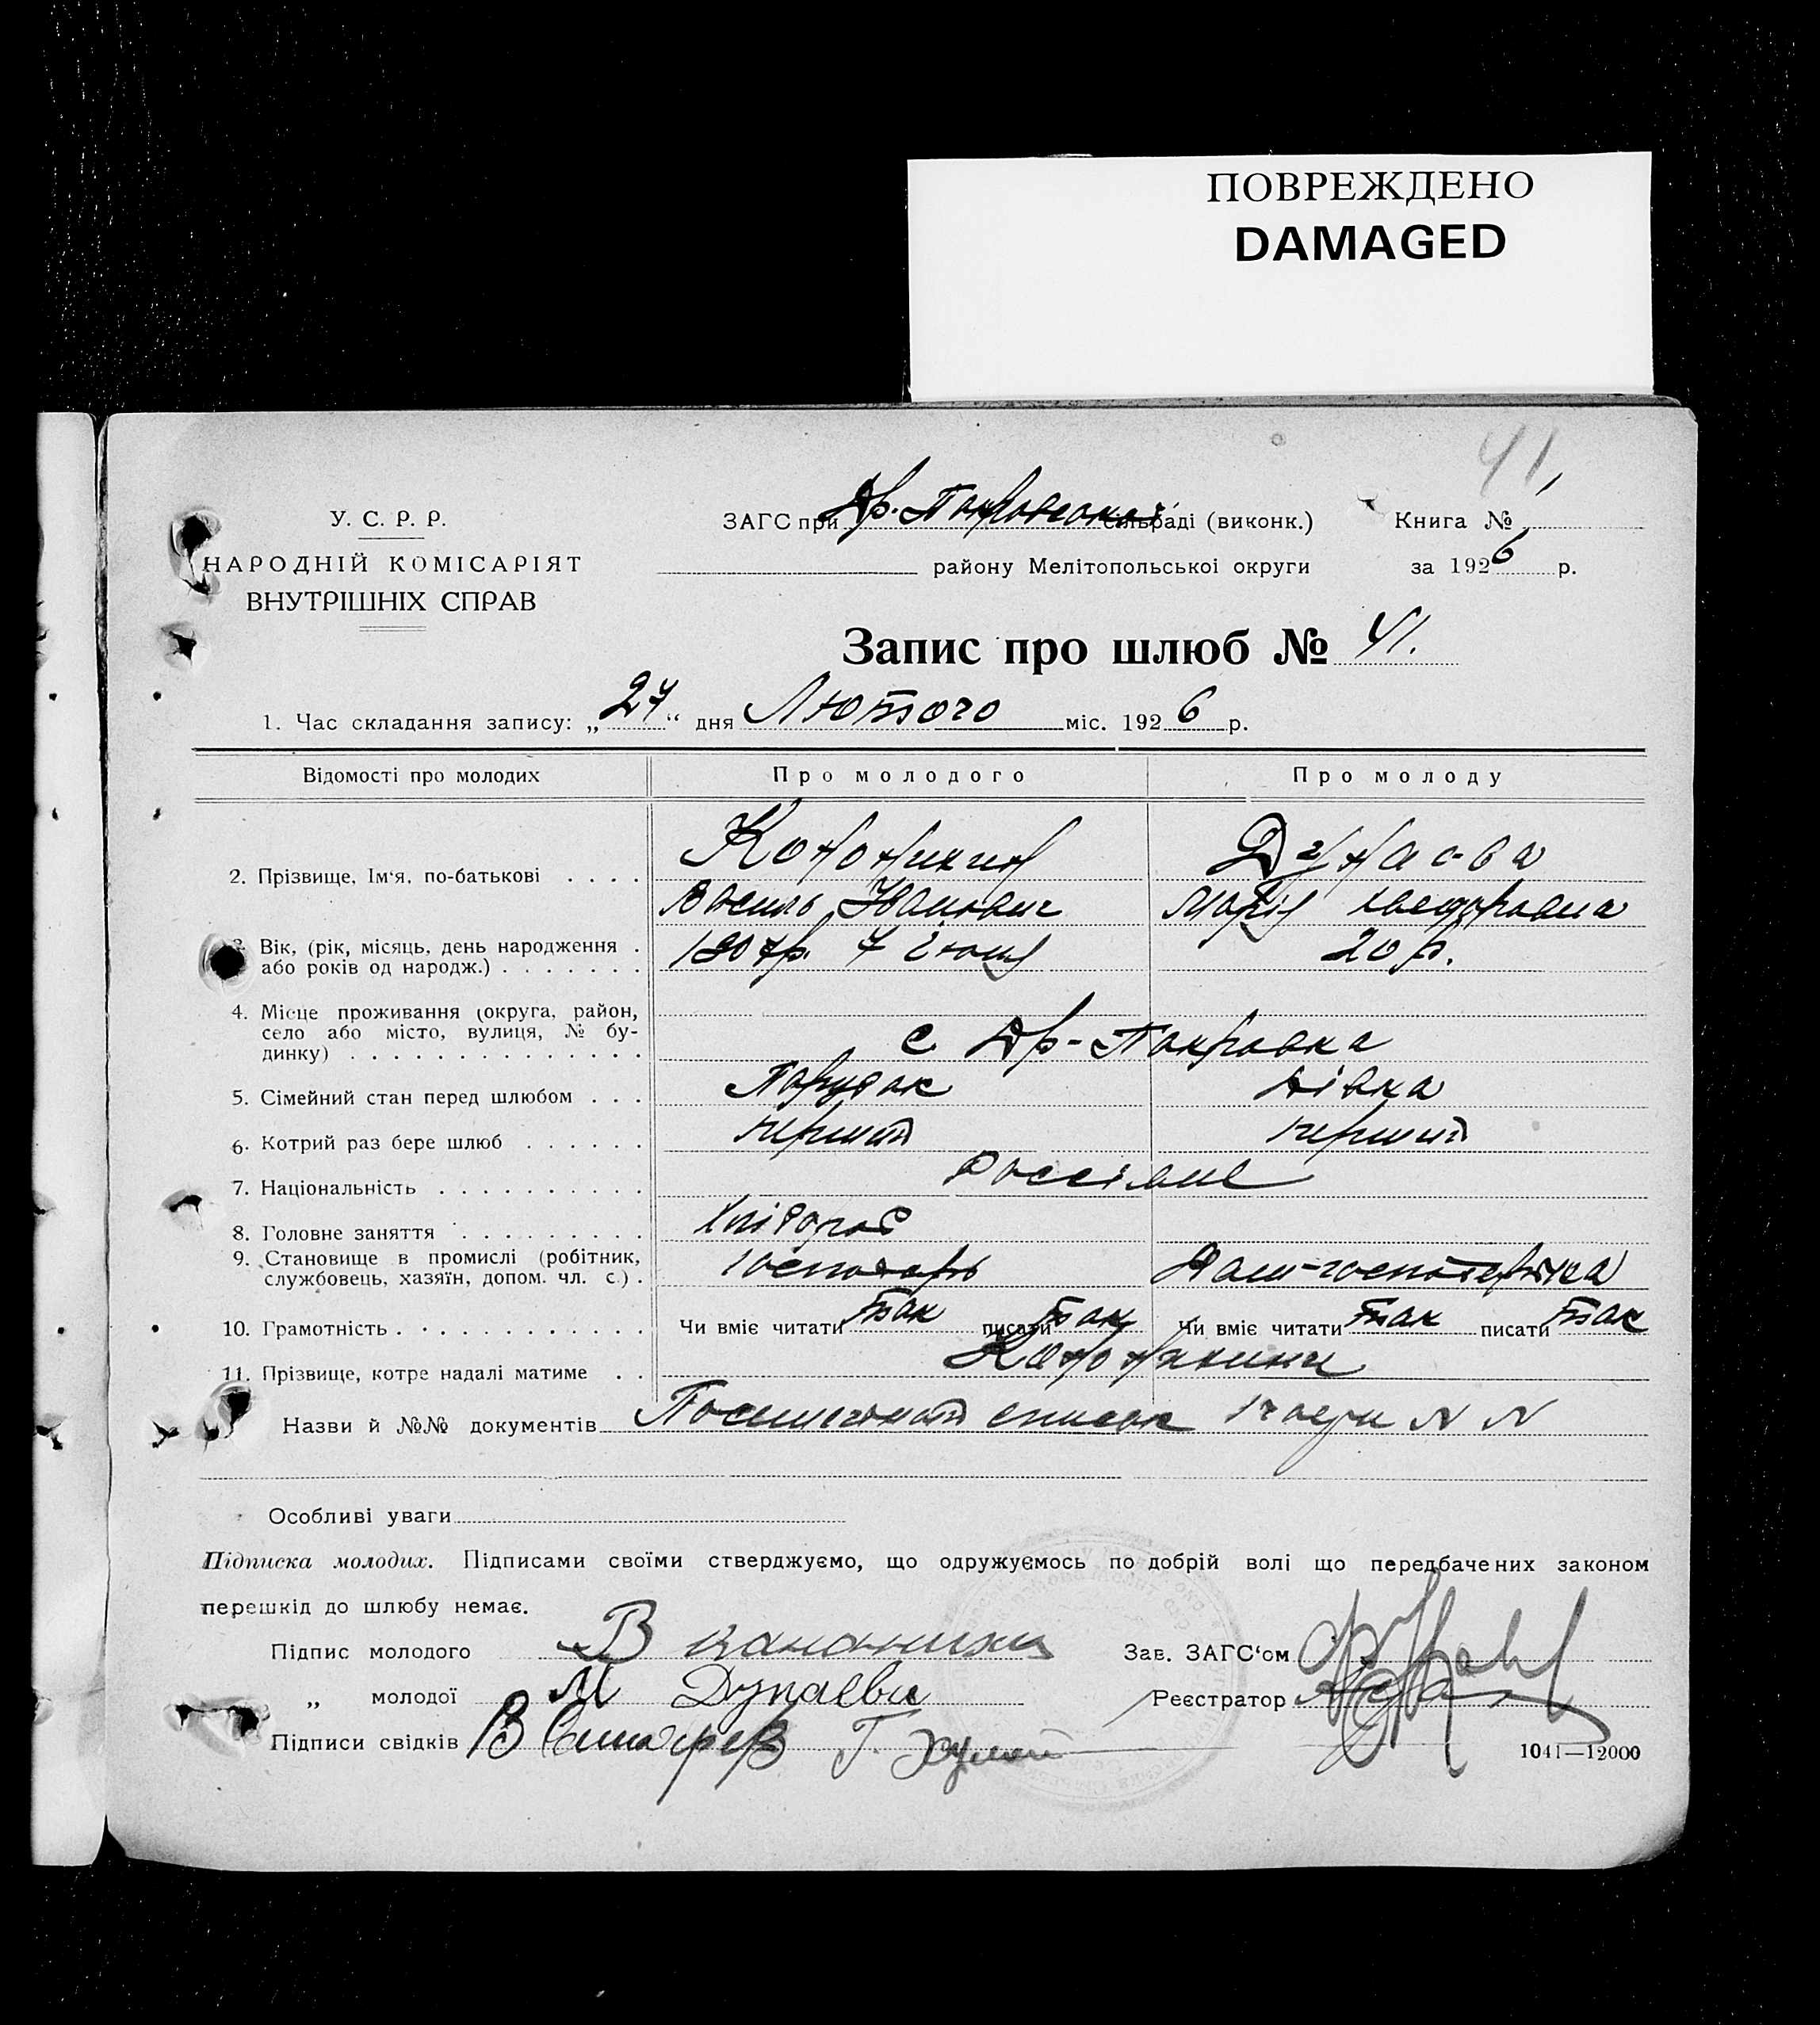 ПОВРЕЖДЕНО
DAMAGED
41
У. С. Р. Р.
НАРОДНІЙ КОМІСАРІЯТ
ВНУТРІШНІХ СПРАВ
ЗАГС при Др.-Покровской сільраді (виконк.) Книга №
району Мелітопольської округи за 1926 р.
Запис про шлюб № 41.
1. Час складання запису: „27“ дня Лютого міс. 1926 р.
Відомості про молодих Про молодого Про молоду
2. Прізвище, Ім‘я, по-батькові . . . . Кононихин Дунаева
Василь Іванович Марія Хведоровна
3. Вік, (рік, місяць, день народження . 1907р. 7 20 р.
або років од народж.) . . . . . . .
4. Місце проживання (округа, район,
село або місто, вулиця, № бу-
динку) . . . . . . . . . . . . . . с Др-Покровка
5. Сімейний стан перед шлюбом . . . Парубок Дівка
6. Котрий раз бере шлюб . . . . . . перший перший
7. Національність . . . . . . . . . . Россіяне
8. Головне заняття . . . . . . . . . Хлібороб
9. Становище в промислі (робітник,
службовець, хазяїн, допом. чл. с.) . Господарь Дом-господарка
10. Грамотність . . . . . . . . . . . . Чи вміє читати так писати так Чи вміє читати так писати так
11. Прізвище, котре надалі матиме . . Кононихини
Назви й №№ документів список N N
Особливі уваги
Підписка молодих. Підписами своїми стверджуємо, що одружуємось по добрій волі що передбачених законом
перешкід до шлюбу немає.
Підпис молодого В Зав. ЗАГС‘ом
„ молодої М Дунаева Реєстратор
Підписи свідків В Г.
1041—12000